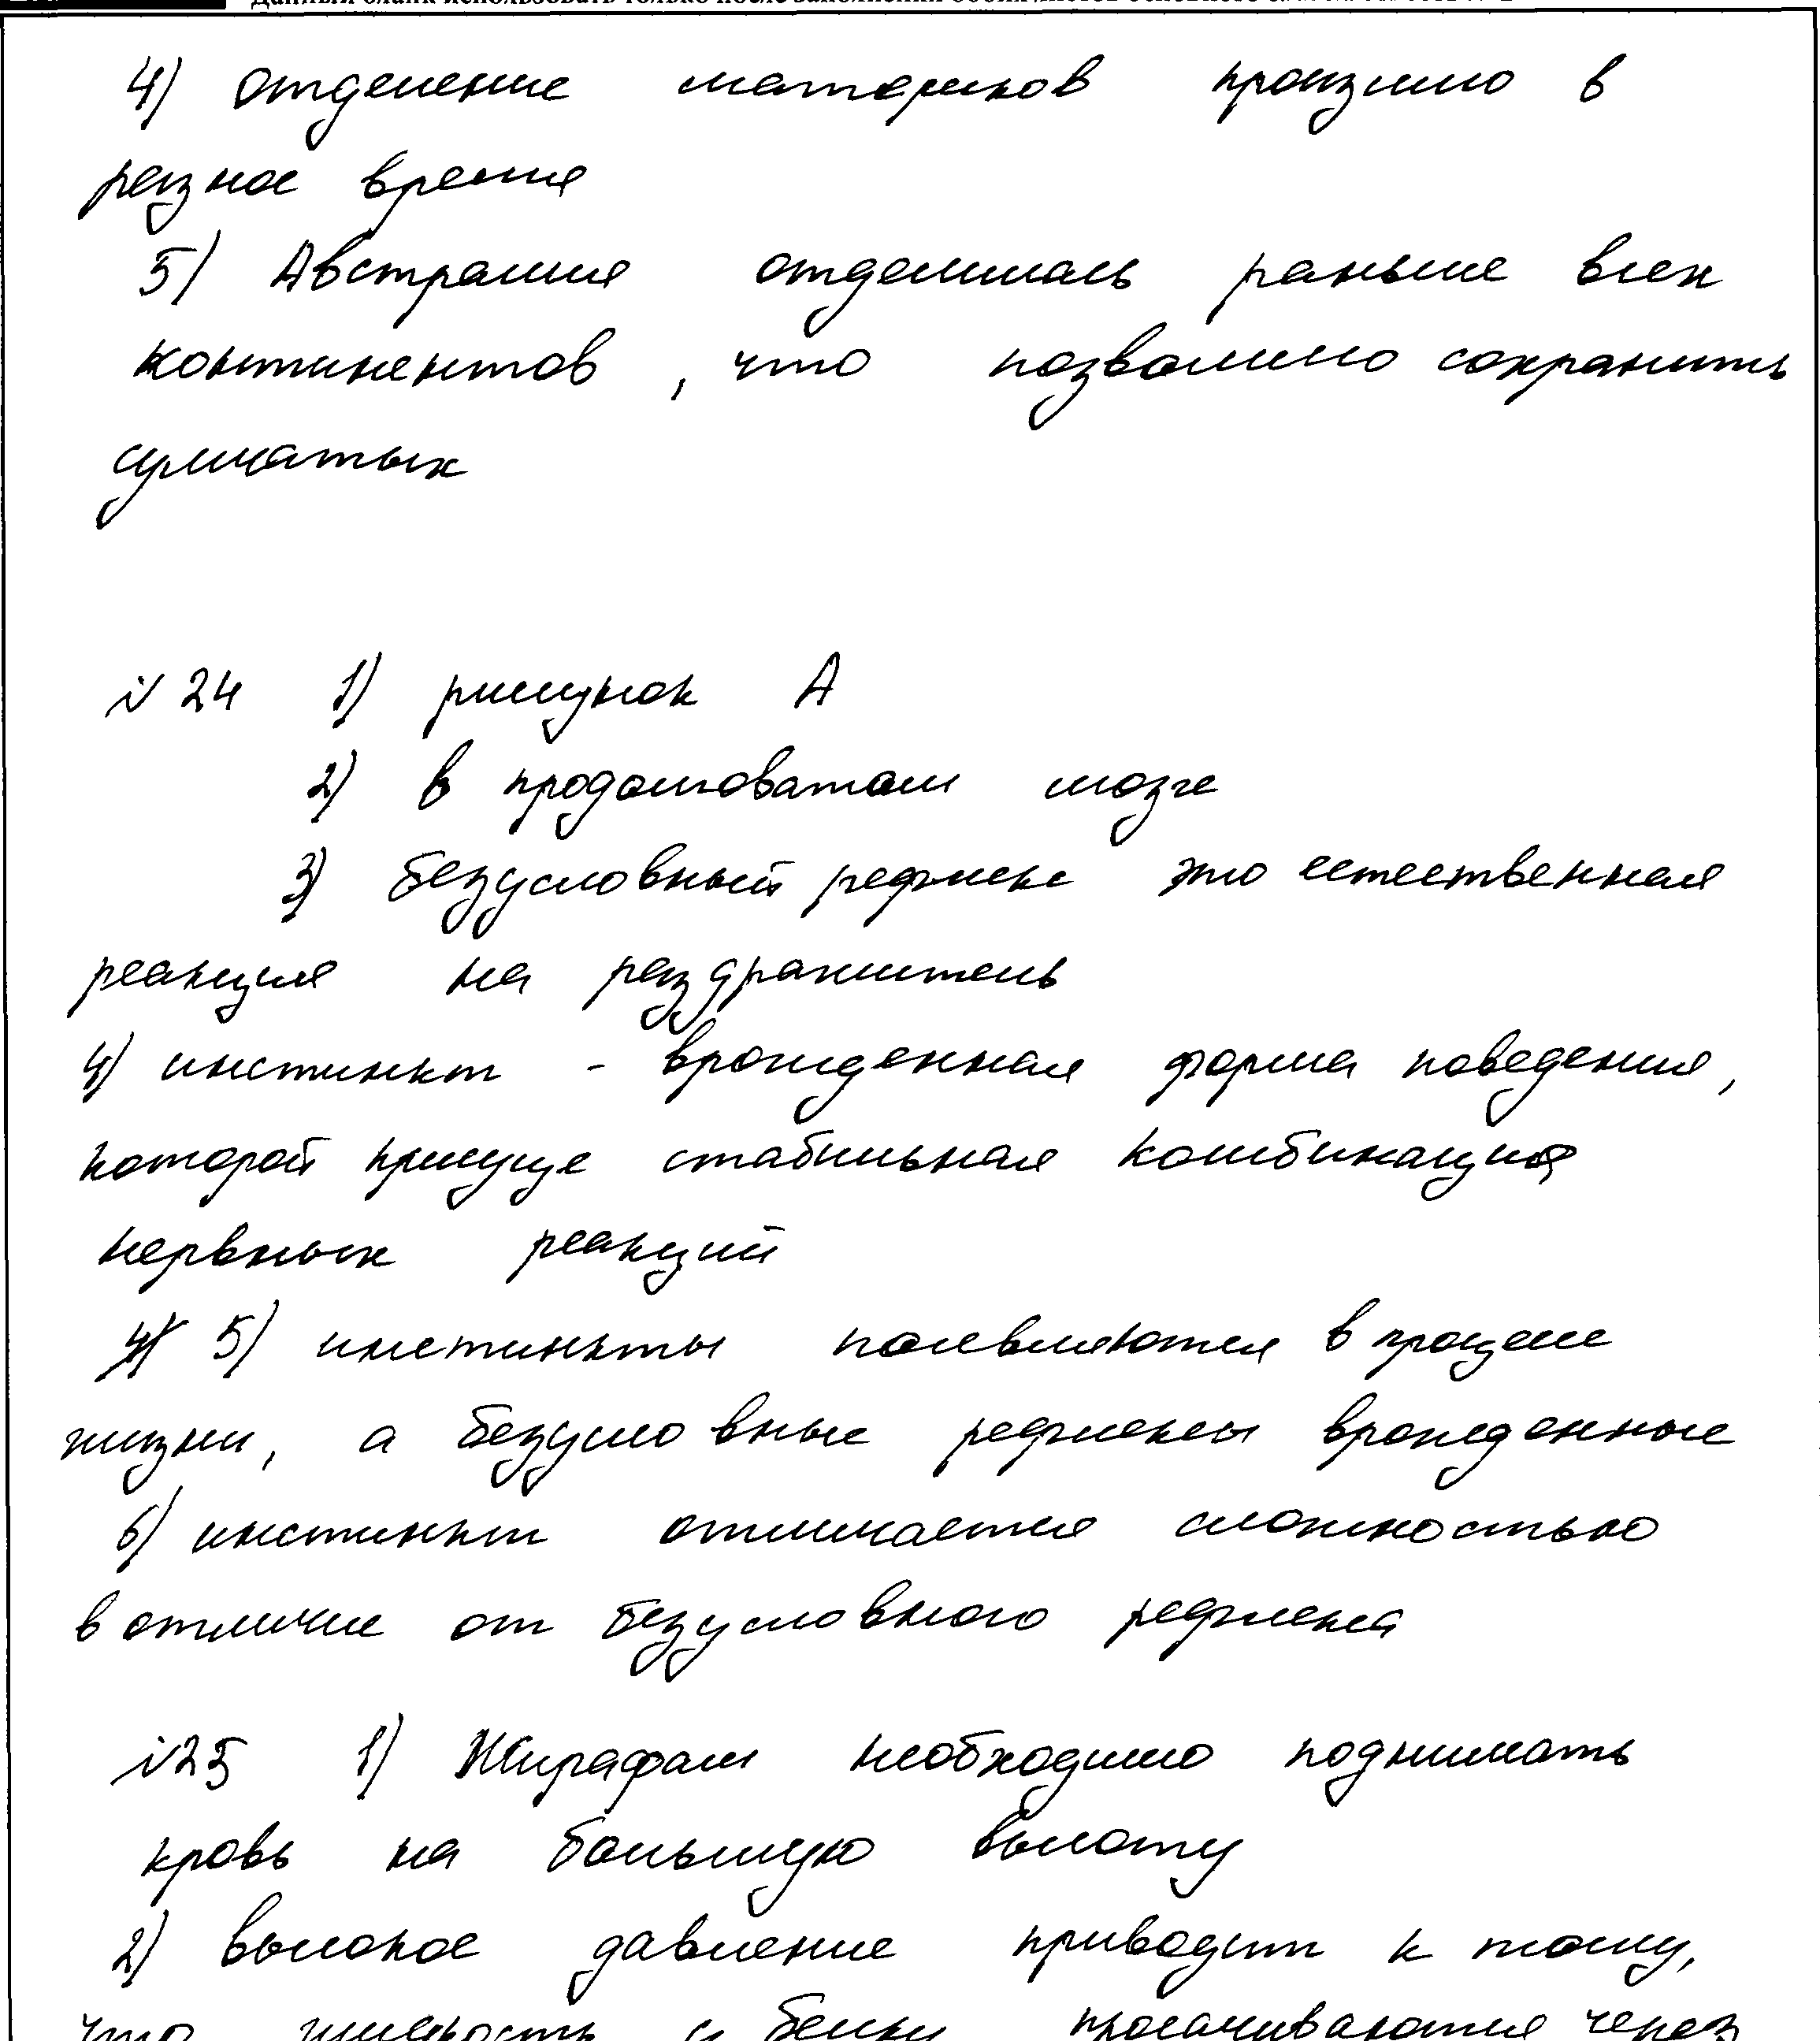 4) отделение материков произошло в
разное время
5) Австралия отделилась раньше всех
континентов, что позволило сохранить
сумчатых
№24 1) рисунок А
2) в продолговатом мозге
3) безусловный рефлекс это естественная
реакция на раздражитель
4) инстинкт - врожденная форма поведения,
которой присуще стабильная комбинация
нервных реакций
5) инстинкты появляются в процессе
жизни, а безусловные рефлексы врожденные
6) инстинкт отличается сложностью
в отличие от безусловного рефлекса
№25 1) Жирафам необходимо поднимать
кровь на большую высоту
2) высокое давление приводит к тому,
что жидкость и белки просачиваются через